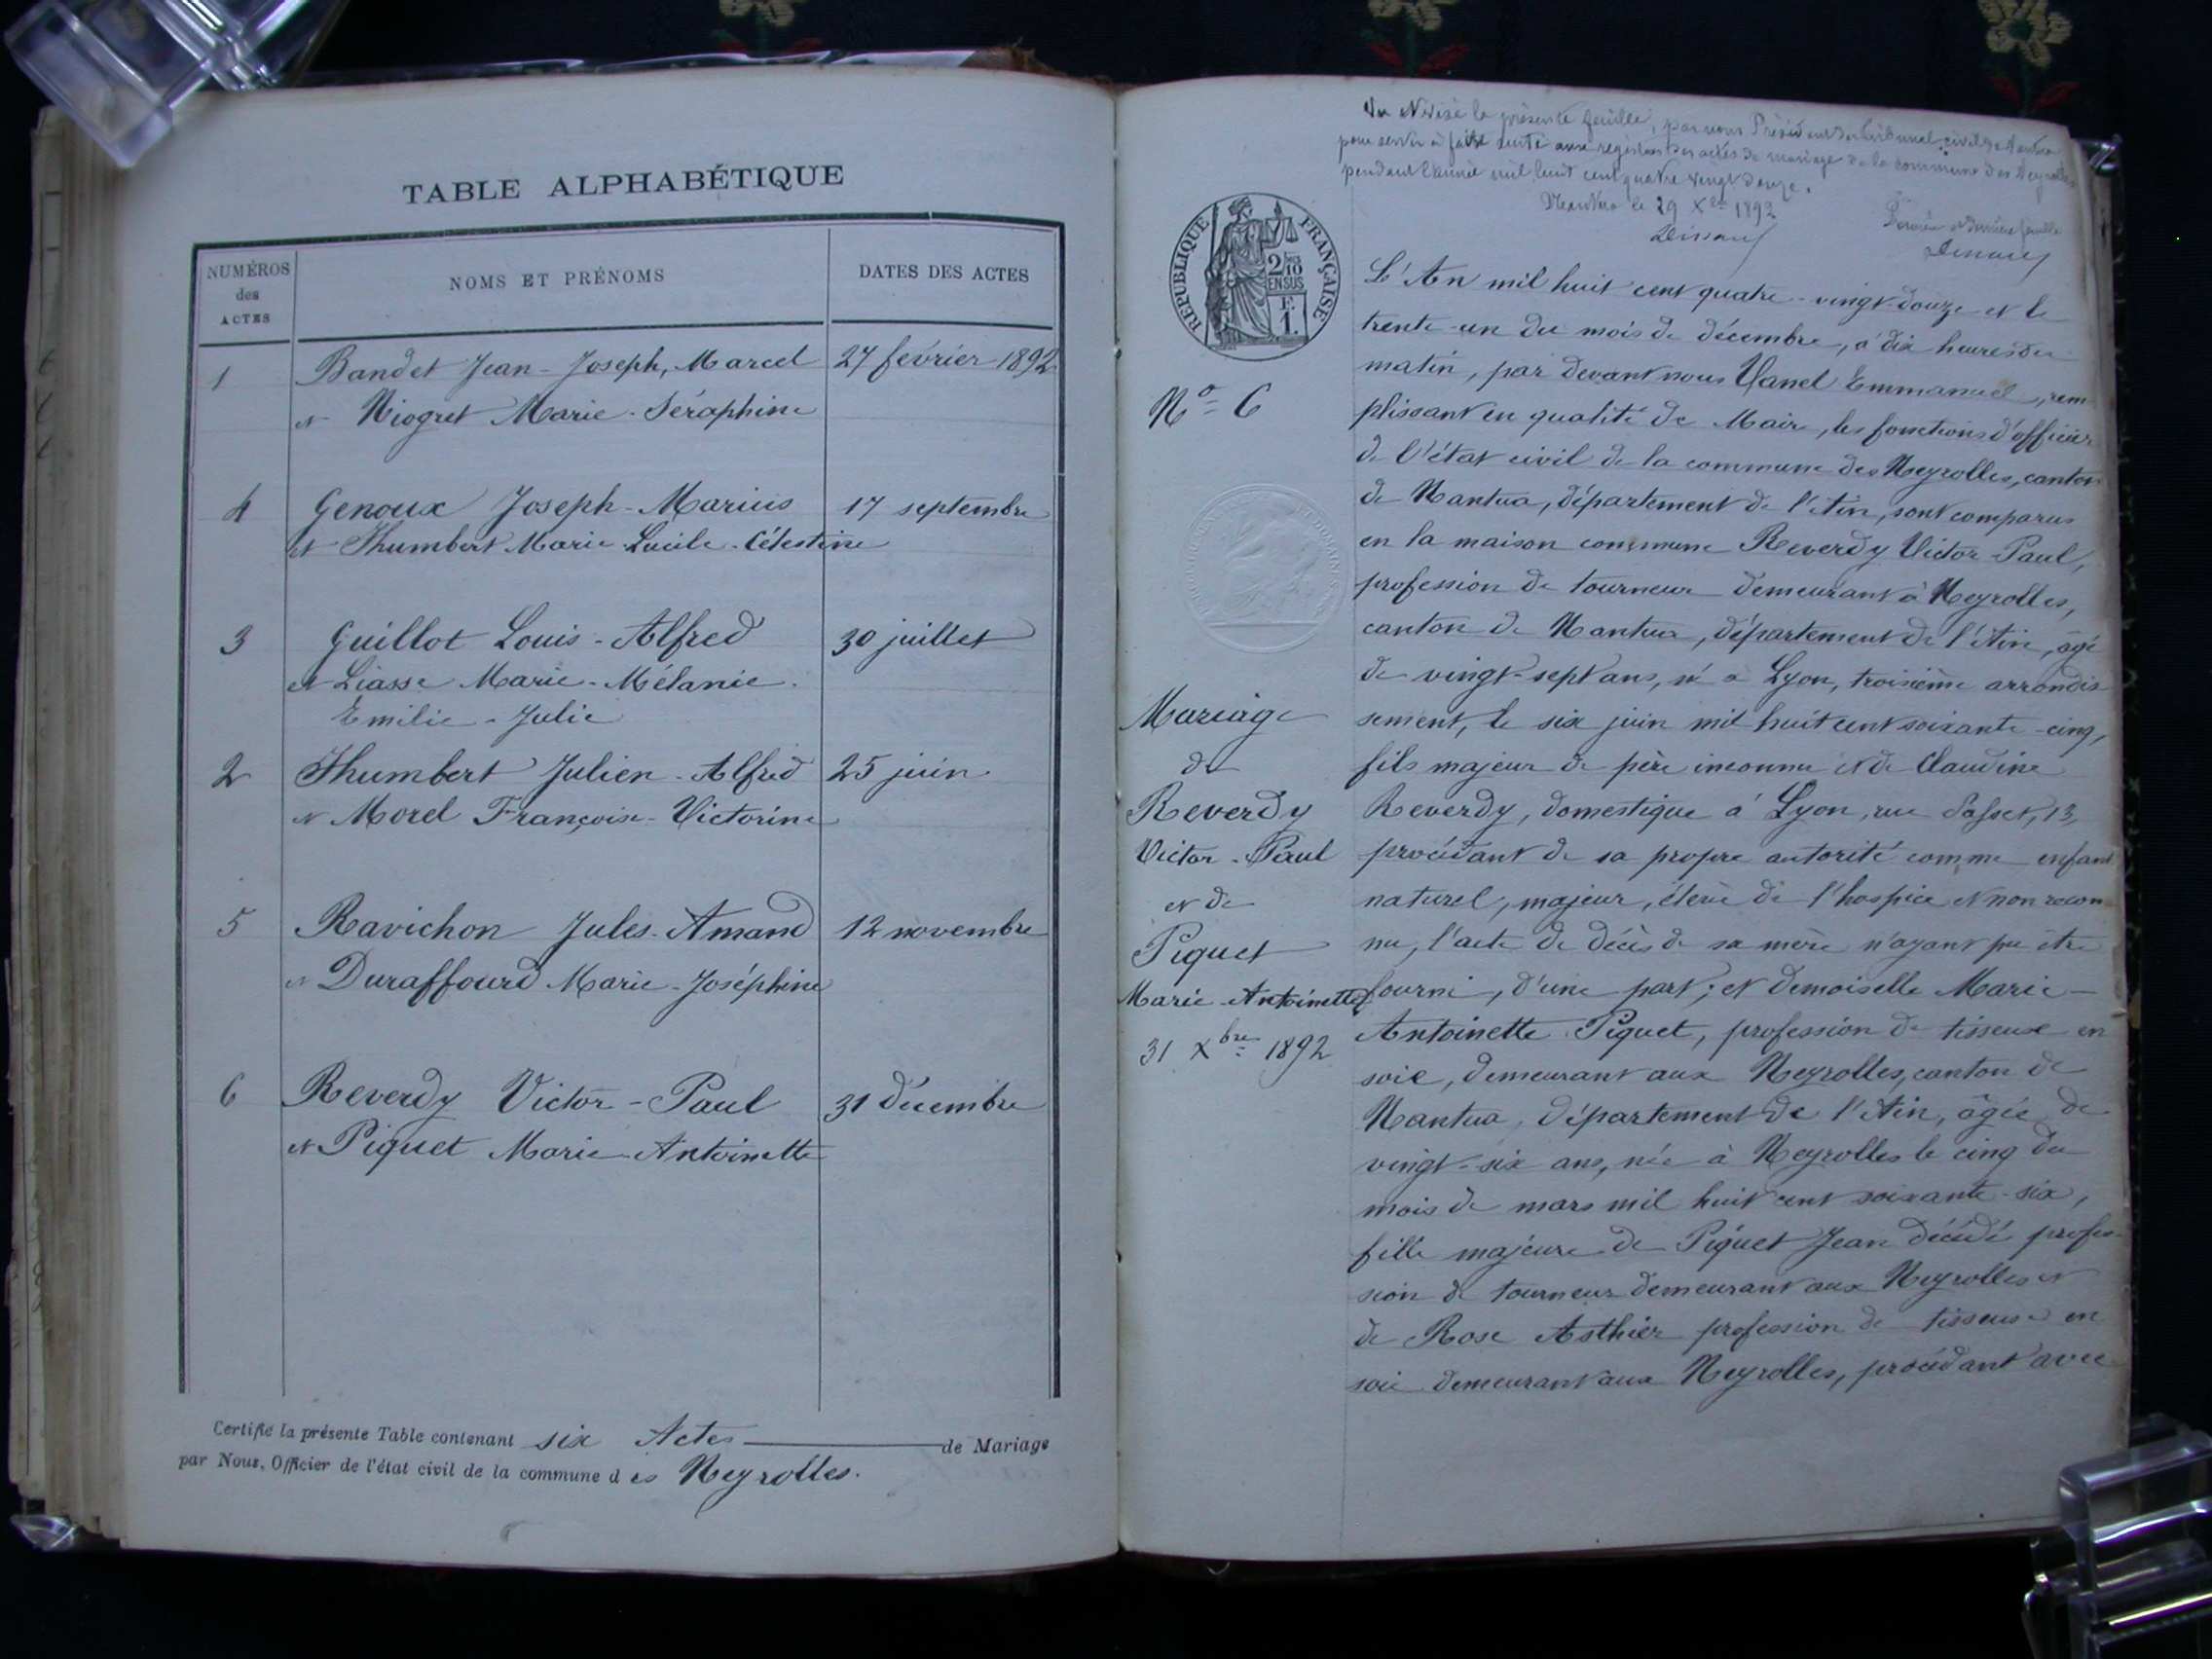 TABLE ALPHABÉTIQUE
NUMÉROS des ACTES
NOMS ET PRÉNOMS
DATES DES ACTES
1 Bandet Jean-Joseph, Marcel 27 février 1892
et Niogret Marie-Séraphine
4 Genoux Joseph-Marius 17 septembre
et Humbert Marie Lucile-Célestine
3 Guillot Louis-Alfred 30 juillet
et Liasse Marie-Mélanie
Emilie-Julie
2 Humbert Julien-Alfred 25 juin
et Morel Françoise-Victorine
5 Ravichon Jules-Amand 12 novembre
et Duraffourd Marie-Joséphine
6 Reverdy Victor-Paul 31 décembre
et Piquet Marie-Antoinette
Certifié la présente Table contenant six Actes de Mariage
par Nous, Officier de l'état civil de la commune des Neyrolles.
la présente feuille, par nous Président du tribunal civil de Nantua
pour servir à faire suite aux registres des actes de mariage de la commune des Neyrolles
pendant l'année mil huit cent quatre vingt douze.
Nantua le 29 Xbre 1892
Première et dernière feuille
RÉPUBLIQUE FRANÇAISE
2/10 EN SUS
F. 1.
No 6
Mariage
de
Reverdy
Victor-Paul
et de
Piquet
Marie-Antoinette
31 Xbre 1892
L'An mil huit cent quatre-vingt-douze et le
trente-un du mois de décembre, à dix heures du
matin, par devant nous Vanel Emmanuel, rem
plissant en qualité de Maire, les fonctions d'officier
de l'état civil de la commune des Neyrolles, canton
de Nantua, département de l'Ain, sont comparus
en la maison commune Reverdy Victor-Paul,
profession de tourneur demeurant à Neyrolles,
canton de Nantua, département de l'Ain, âgé
de vingt-sept ans, né à Lyon, troisième arrondis
sement, le six juin mil huit cent soixante-cinq,
fils majeur de père inconnu et de Claudine
Reverdy, domestique à Lyon, rue 13,
procédant de sa propre autorité comme enfant
naturel, majeur, élevé de l'hospice et non recon
nu, l'acte de décès de sa mère n'ayant pu être
fourni, d'une part; et demoiselle Marie-
Antoinette Piquet, profession de tisseuse en
soie, demeurant aux Neyrolles, canton de
Nantua, département de l'Ain, âgée de
vingt-six ans, née à Neyrolles le cinq du
mois de mars mil huit cent soixante-six,
fille majeure de Piquet Jean décédé profes-
sion de tourneur demeurant aux Neyrolles et
de Rose Asthier profession de tisseuse en
soie demeurant aux Neyrolles, procédant avec